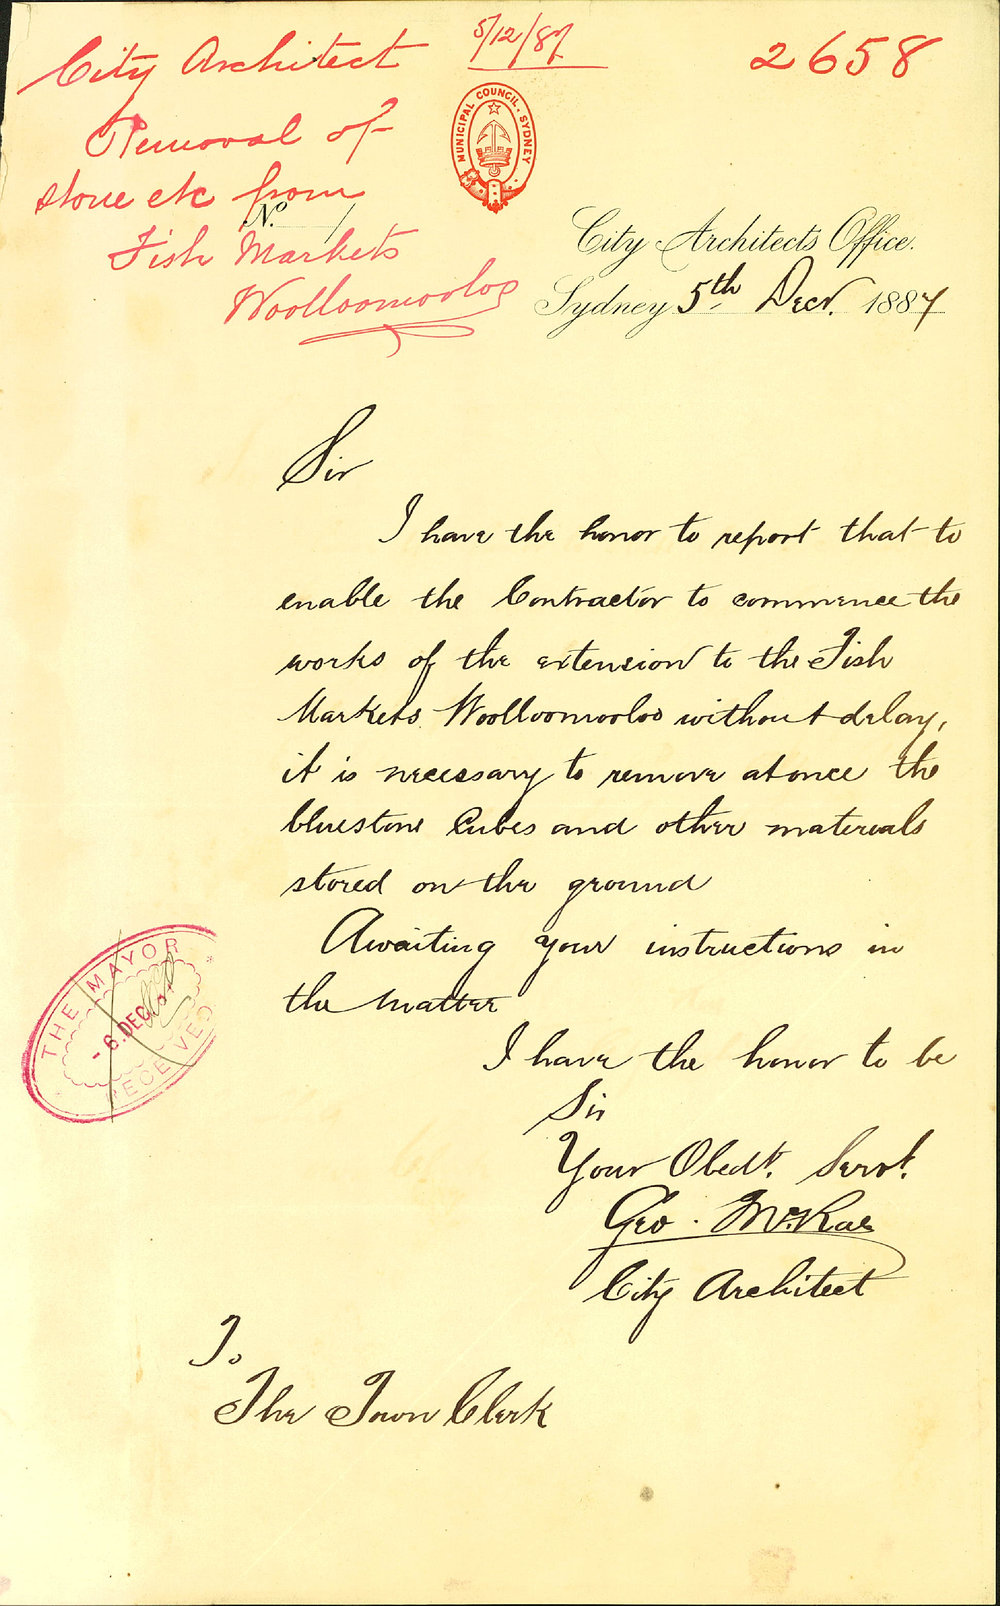 City Architect
5/12/87
2658
Removal of
stone etc from
Fish Markets
Woolloomooloo
MUNICIPAL COUNCIL. SYDNEY
No. /
City Architects Office.
Sydney 5th Decr. 1887
Sir
I have the honor to report that to
enable the Contractor to commence the
works of the extension to the Fish
Markets Woolloomooloo without delay,
it is necessary to remove at once the
bluestone Cubes and other materials
stored on the ground
Awaiting your instructions in
the matter
I have the honor to be
Sir
Your Obedt. Servt.
Geo. McRae
City Architect
THE MAYOR
- 6. DEC
RECEIVED
To
The Town Clerk